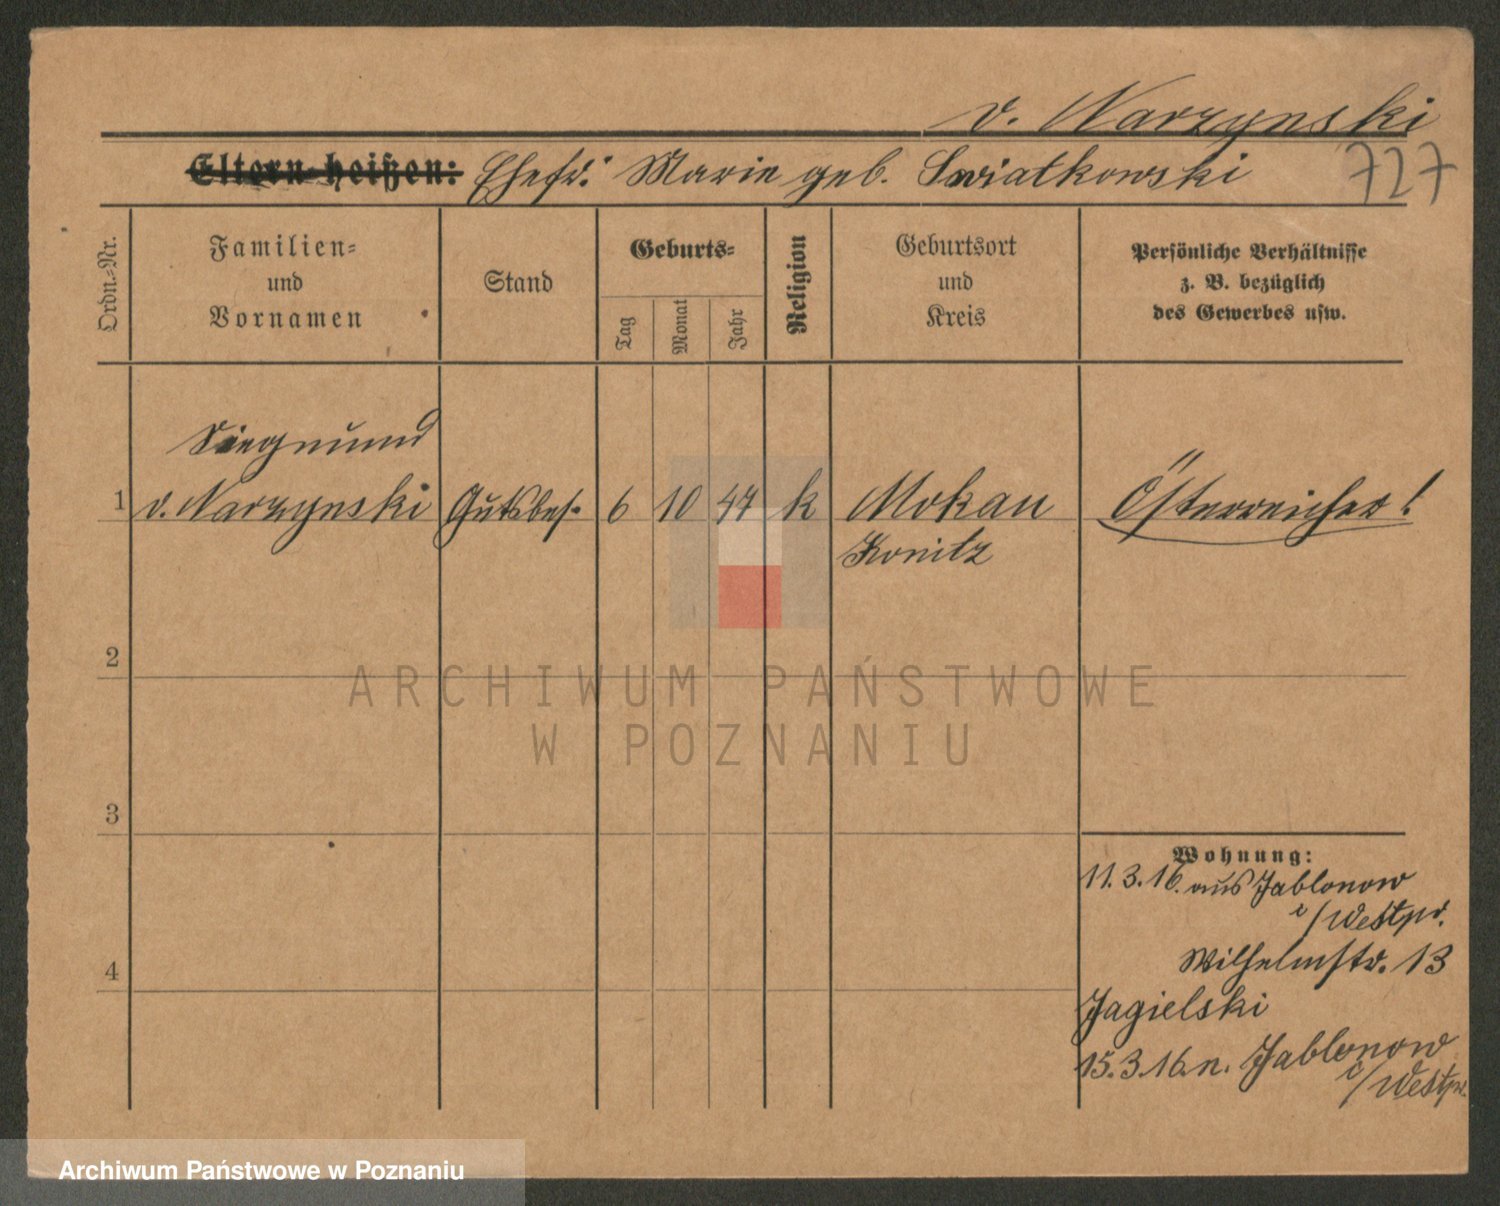 v. Narzynski
Eltern heißen: Ehefr: Marie geb. Swiatkowski 727
Ordn.-Nr.
Familien-
und
Vornamen
Stand
Geburts-
Tag
Monat
Jahr
Religion
Geburtsort
und
Kreis
Persönliche Verhältnisse
z. B. bezüglich
des Gewerbes usw.
Siegmund
1 v. Narzynski Gutsbes. 6 10 47 k Mokau Österreicher!
Konitz
2
3
4
Wohnung:
11.3.16. aus Jablonow
i/Westpr.
Wilhelmstr. 13
Jagielski
15.3.16. n. Jablonow
i/Westpr.
ARCHIWUM PAŃSTWOWE
W POZNANIU
Archiwum Państwowe w Poznaniu